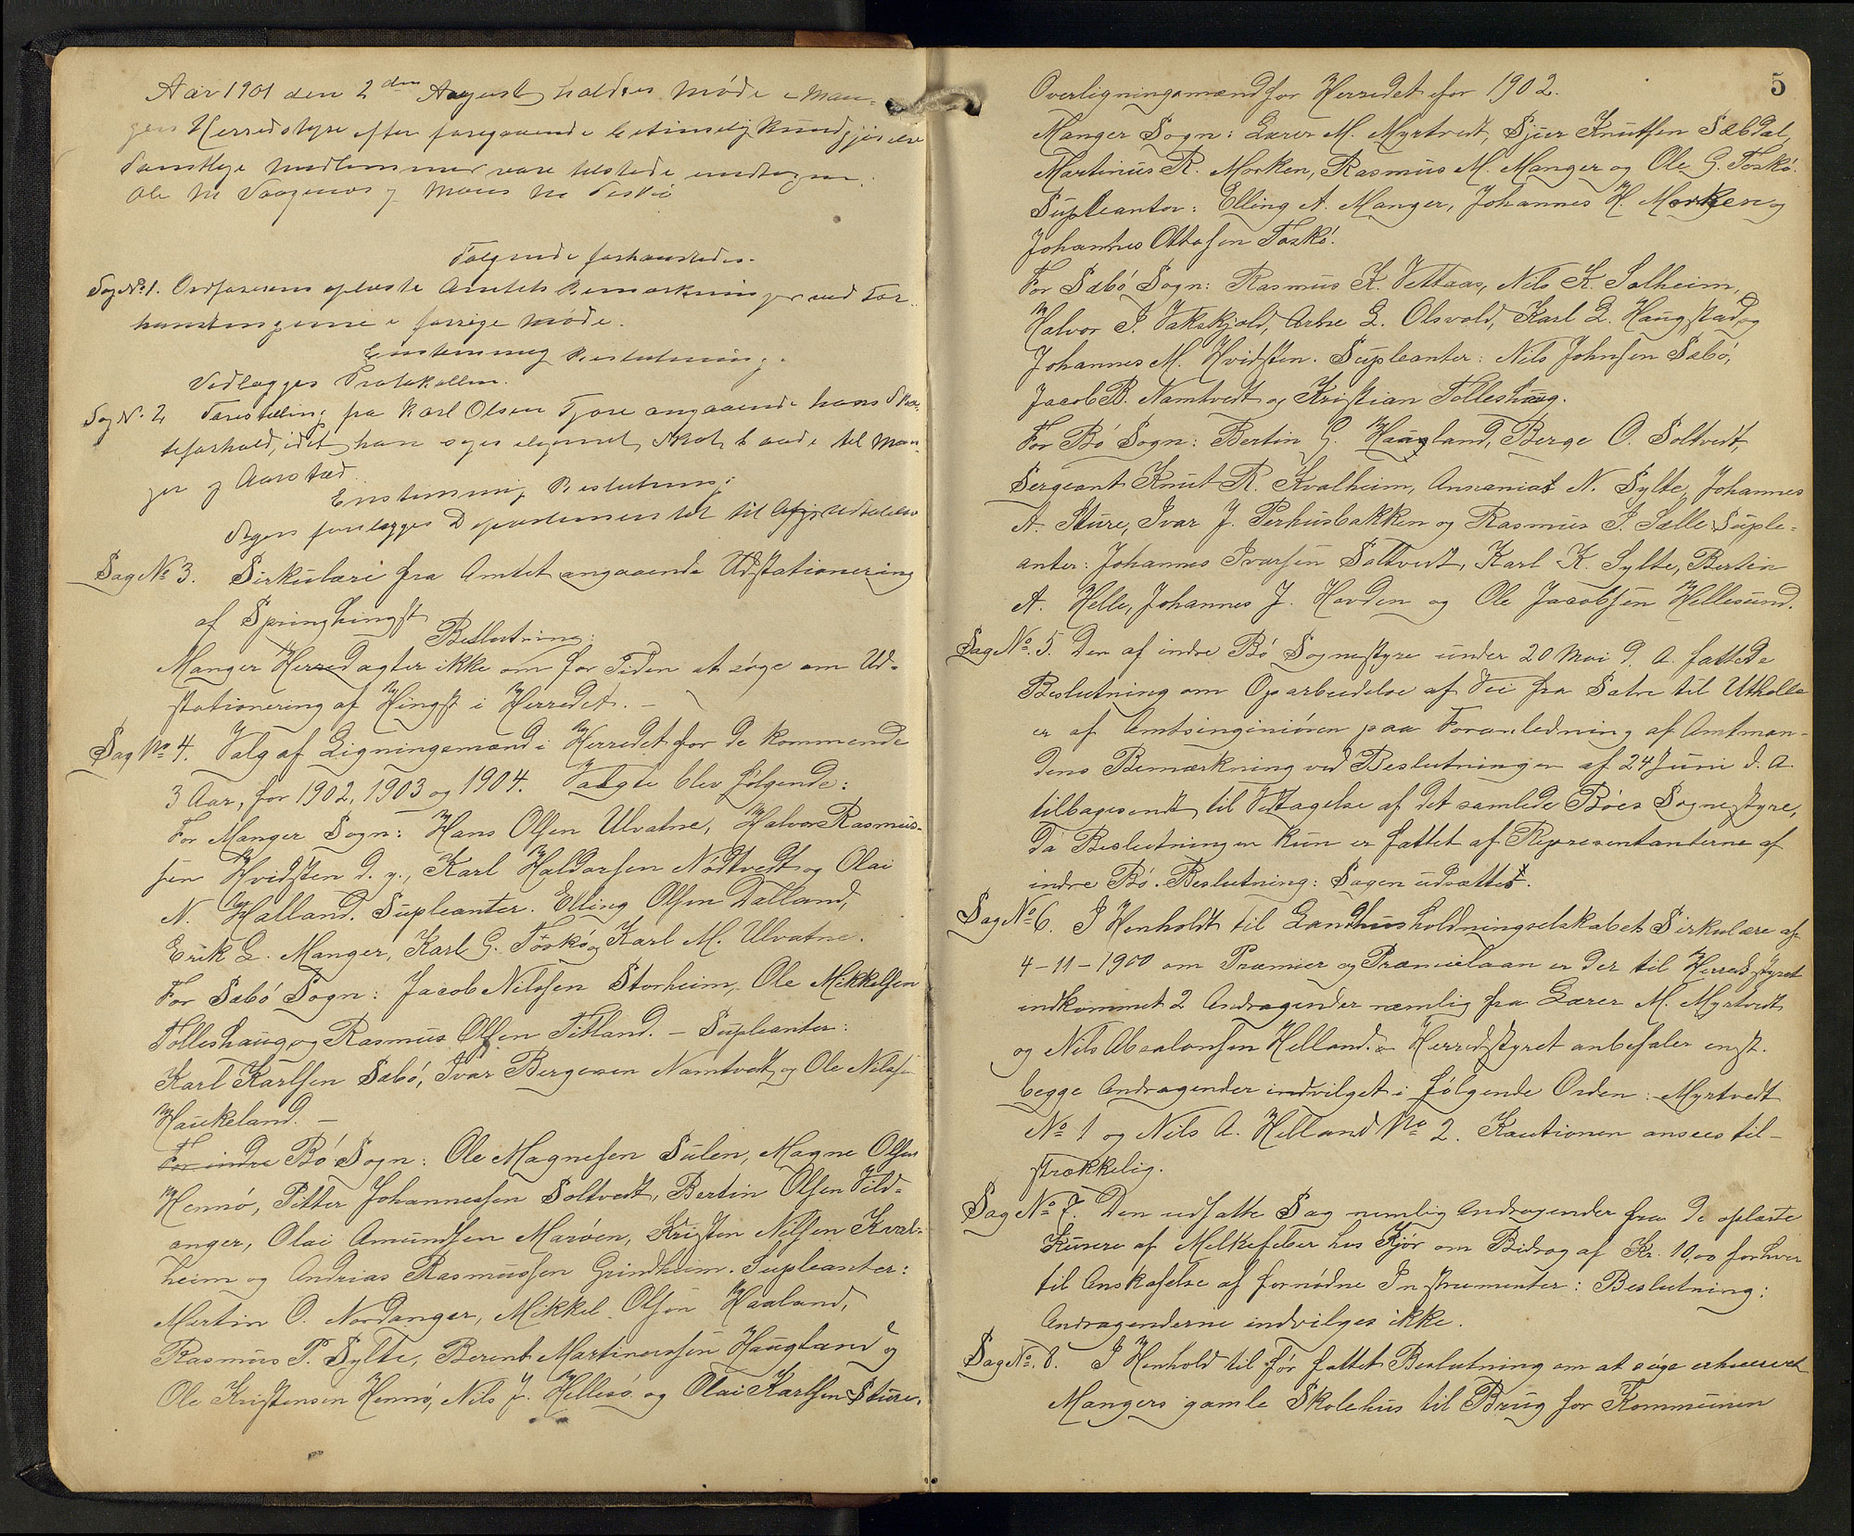 Aar 1901 den 2den August holdtes Møde i Man-
gers Herredstyre efter foregaaende betimelig kundgjørelse
Samtlige medlemmer vare tilstede undtagen:
Ole
Følgende forhandledes.
Sag No 1. Ordføreren oplæste Amtets Bemærkninger ved For-
handlingerne i forrige Møde.
Enstemmig Beslutning:
Vedlægges Protokollen.
Sag No. 2. Forestilling fra Karl Olsen angaaende hans Skat-
teforhold, idet han siges ilignet Skat baade til Man-
ger og Aarstad
Enstemmig Beslutning:
Sagen forelægges Departementet til Udtalelse
Sag No 3. Sirkulære fra Amtet angaaende Udstationering
af Springhingst
Beslutning:
Manger Herred agter ikke om for Tiden at søge om Ud-
stationering af Hingst i Herredet. –
Sag No 4. Valg af Ligningsmænd i Herredet for de kommende
3 Aar, for 1902, 1903 og 1904. Valgte blev følgende:
For Manger Sogn: Hans Olsen Ulvatne, Halvor Rasmus-
sen Hvidsten d. y., Karl Haldorsen Nødtvedt og Olai
N. Halland. Supleanter. Elling Olsen Dalland,
Erik L. Manger, Karl G. Toskø og Karl M. Ulvatne.
For Sæbø Sogn: Jacob Nilssen Storheim, Ole Mikkelsen
Tolleshaug og Rasmus Olsen Titland. – Supleanter:
Karl Karlsen Sæbø, Ivar Bergesen Namtvedt og Ole Nilssen
Haukeland. –
For indre Bø Sogn: Ole Magnesen Sulen, Magne Olsen
Hennø, Pitter Johannessen Soltvedt, Bertin Olsen Vild-
anger, Olai Amundsen Marøen, Kristen Nilsen Kval-
heim og Andrias Rasmussen Grindheim. Supleanter:
Martin O. Nordanger, Mikkel Olson Haaland,
Rasmus P. Sylte, Berent Martinussen Haugland og
Ole Kristensen Hennø, Nils J. Hellesø og Olai Karlsen Sture.
5
Overligningsmænd for Herredet for 1902.
Manger Sogn: Lærer M. Myrtvedt, Sjur Knutsen Sæbdal,
Martinus R. Morken, Rasmus M. Manger og Ole G. Toskø.
Supleantor: Elling A. Manger, Johannes H. Morken og
Johannes Ottosen Toskø.
For Sæbø Sogn: Rasmus K. Vettaas, Nils K. Solheim,
Halvor I. Vakskjold, Arne L. Olsvold, Karl L. Haugstad og
Johannes M. Hvidsten. Supleanter: Nils Johnsen Sæbø,
Jacob B. Namtvedt og Kristian Tolleshaug.
For Bø Sogn: Bertin G. Haugland, Berge O. Soltvedt,
Sergeant Knut R. Kvalheim, Ananias N. Sylte, Johannes
A. Sture, Ivar J. Perhusbakken og Rasmus I. Sælle. Suple-
anter: Johannes Ivarsen Soltvedt, Karl K. Sylte, Bertin
A. Helle, Johannes J. Hovden og Ole Jacobsen Hellesund.
Sag No. 5. Den af indre Bø Sognestyre under 20 Mai d. A. fattede
Beslutning om Oparbeidelse af Vei fra Sætre til Utkolte
er af Amtsinginiøren paa Foranledning af Amtman-
dens Bemærkning ved Beslutningen af 24 Juni d. A.
tilbagesendt til Vedtagelse af det samlede Bøes Sognestyre,
da Beslutningen kun er fattet af Representanterne af
indre Bø. Beslutning: Sagen udsættes.
Sag No 6. I Henholdt til Landhusholdningselskabet Sirkulære af
4-11-1900 om Præmier og Præmielaan er der til Herredsstyret
indkommet 2 Andragender nemlig fra Lærer M. Myrtvedt
og Nils Absalonsen Helland. – Herredsstyret anbefaler enst.
begge Andragender indvilget i følgende Orden: Myrtvedt
No 1 og Nils A. Helland No 2. Kautionen ansees til-
strækkelig.
Sag No 7. Den udsatte Sag nemlig Andragender fra de oplærte
Kurere af Melkefeber hos Kjør om Bidrag af Kr. 10,00 forhver
til Anskafelse af fornødne Instrumenter: Beslutning:
Andragenderne indvilges ikke.
Sag No. 8. I Henhold til før fattet Beslutning om at søge erhvervet
Mangers gamle Skolehus til Brug for Kommunen